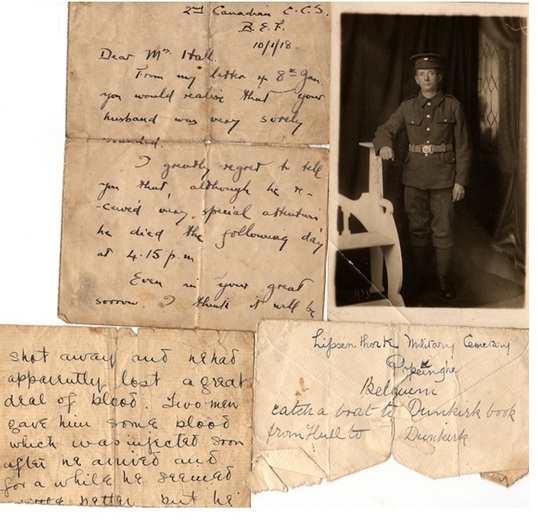 2nd Canadian C.C.S.
B.E.F.
10/1/18.
Dear Mrs. Hall.
From my letter of 8th Jan
you would realise that your
husband was very sorely
wounded.
I greatly regret to tell
you that although he re-
-ceived very special attention
he died the following day
at 4.15 p.m
Even in your great
sorrow I think it will be
shot away and he had
apparently lost a great
deal of blood. Two men
gave him some blood
which was injected soon
after he arrived and
for a while he seemed
better but he
Lijssenthoek Military Cemetary
Belguim
catch a boat to Dunkirk book
from Hull to Dunkirk